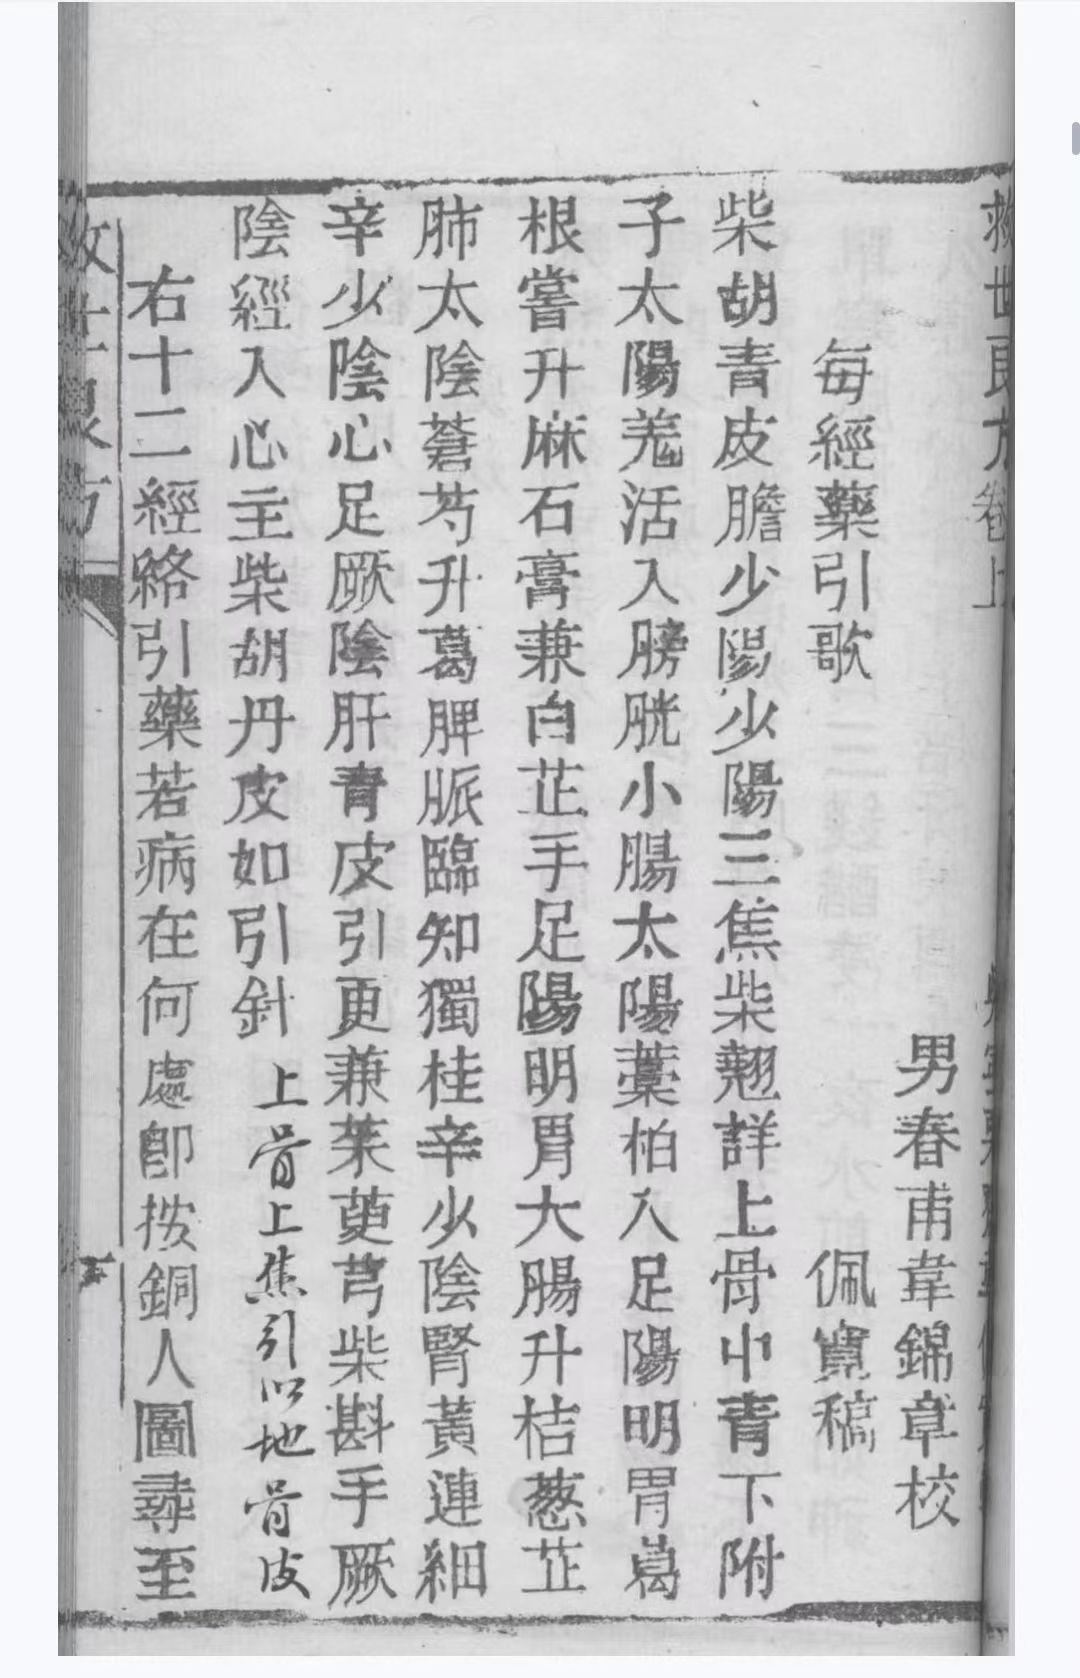 救世良方卷上
男春甫韋錦章校
每經藥引歌 佩寛稿
柴胡青皮膽少陽少陽三焦柴翹詳上骨中青下附
子太陽羗活入膀胱小腸太陽藁柏入足陽明胃葛
根嘗升麻石膏兼白芷手足陽明胃大腸升桔葱芷
肺太陰蒼芍升葛脾脈臨知獨桂辛少陰腎黃連細
辛少陰心足厥陰肝青皮引更兼茱萸芎柴斟手厥
陰經入心主柴胡丹皮如引針 上骨上焦引以地骨皮
右十二經絡引藥若病在何處卽按銅人圖尋至
救世良方